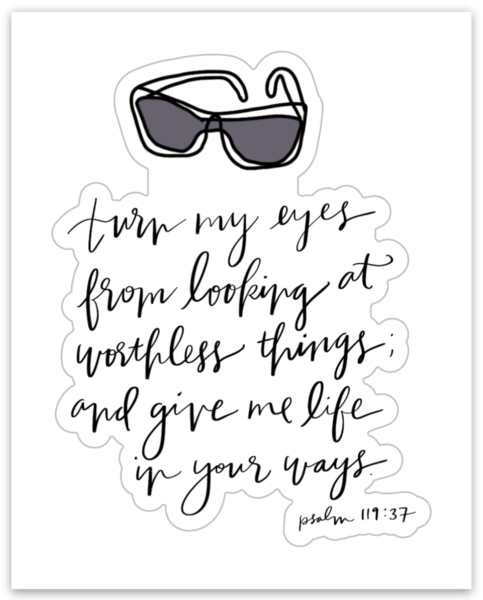 turn my eyes
from looking at
worthless things;
and give me life
in your ways.
psalm 119:37